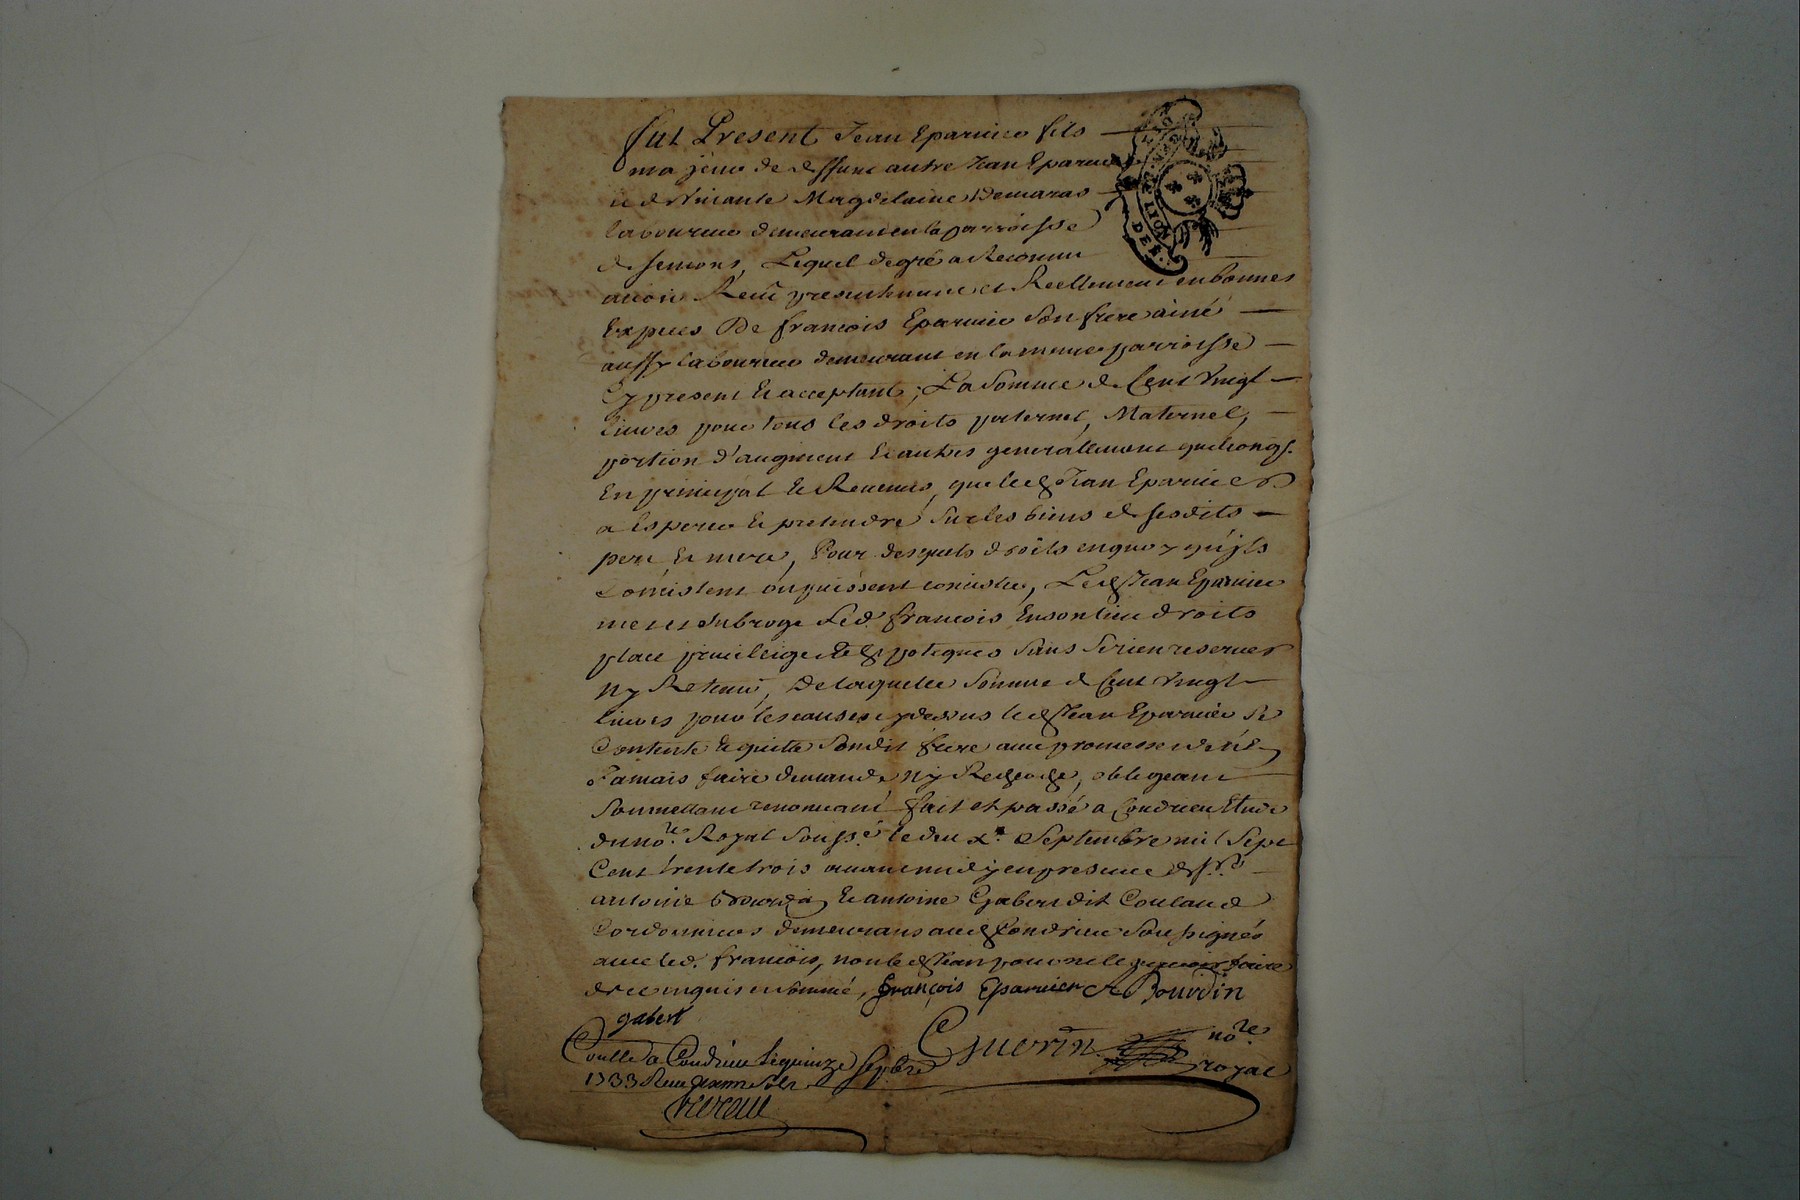 fut Present Jean Eparvier fils
majeur de deffunt autre Jean Eparvier
et de vivante Magdelaine Demaras
laboureur demeurant en la parroisse
de semons, Lequel de gré a Reconnu
avoir Receu presentement et Reellement en bonnes
Especes De francois Eparvier son frere ainé
aussy laboureur demeurant en la meme parroisse
Cy present et acceptant, La somme de Cent vingt
livres pour tous les droits paternel, Maternel,
portion d'augment et autres generallement quelconqs.
En principal et Revenus, que led. Jean Eparvier
a Esperer et pretendre sur les biens de sesdits
pere et mere, Pour desquels droits en quoy qu'jls
Consistent ou puissent consister, Led. Jean Eparvier
met et subroge Led. francois En son lieu droits
place privileige et hypoteques sans se rien reserver
Ny Retenir, De laquelle somme de Cent vingt
livres pour les causes cy dessus led. Jean Eparvier se
Contente et quitte sondit frere avec promesse de n'en
Jamais faire demande Ny Recherche, obligeant
soumettant renonceant fait et passé a Condrieu Etude
du nore. Royal soussé. le deux Septembre mil sept
Cent trente trois avant midy en presence de srs.
antoine Bourdin et antoine Gabert dit Couland
Cordonniers demeurans aud. Condrieu soussignés
avec led. francois, non led. Jean pour ne le scavoir faire
de ce enquis et sommé, françois Eparvier A Bourdin
gabert
Guerin nore. royal
Conllé a Condrieu le quinze sepbre
1733 Receu